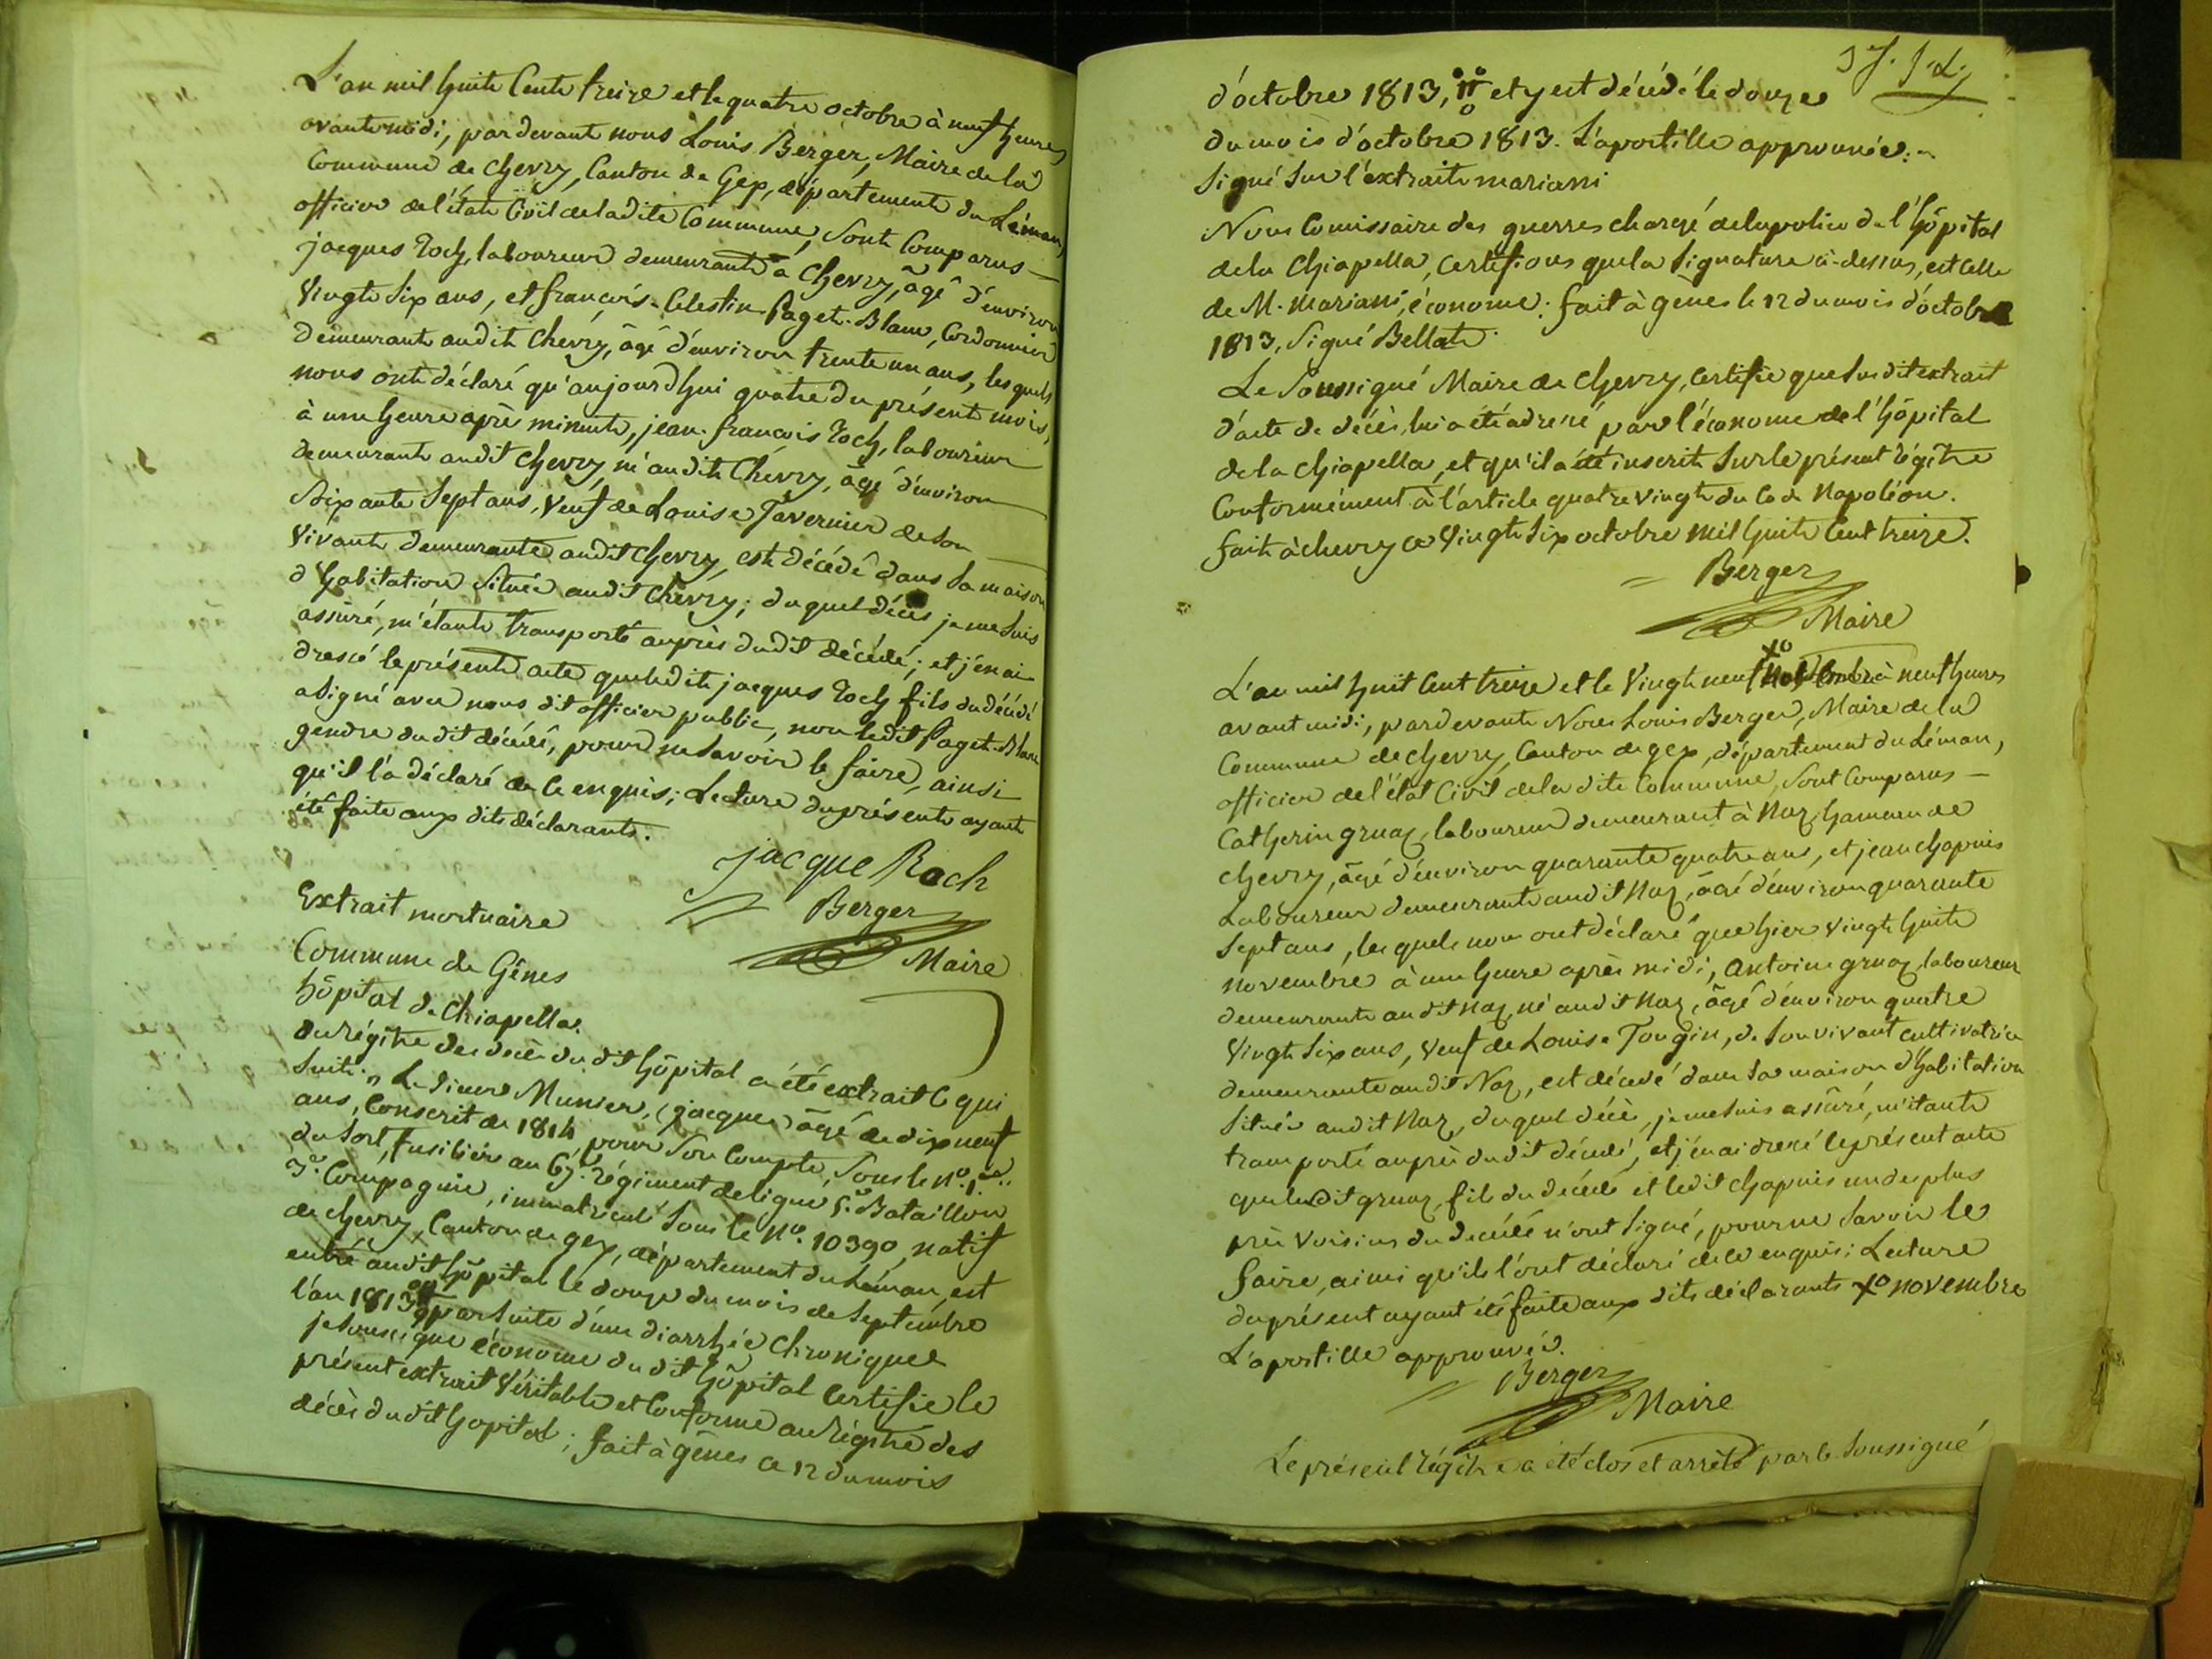 L'an mil huit Cent treize et le quatre octobre à neuf heures
avant midi, par devant nous Louis Berger, Maire de la
Commune de Chevry, Canton de Gex, département du Léman,
officier de l'état Civil de ladite Commune, sont Comparus
jacques Roch, laboureur demeurant à Chevry, âgé d'environ
vingt six ans, et françois-Celestin Paget-Blanc, Cordonnier
demeurant audit Chevry, âgé d'environ trente un ans, lesquels
nous ont déclaré qu'aujourd'hui quatre du présent mois,
à une heure après minuit, jean-françois Roch, laboureur
demeurant audit Chevry, né audit Chevry, âgé d'environ
Soixante Sept ans, veuf de Louise Tavernier de son
vivant demeurante audit Chevry, est décédé dans sa maison
d'habitation située audit Chevry; duquel décès je me suis
assuré, m'étant transporté auprès dudit décédé; et j'en ai
dressé le présent acte que ledit jacques Roch fils du décédé
a signé avec nous dit officier public, non ledit Paget-Blanc
gendre du dit décédé, pour ne savoir le faire, ainsi
qu'il l'a déclaré de ce enquis; Lecture du présent ayant
été faite aux dits déclarants.
jacque Roch
Berger
Maire
Extrait mortuaire
Commune de Gênes
hôpital de Chiapella.
du régitre des decès du dit hôpital a été extrait Ce qui
suit: " Le sieur Munier, (jacques) âgé de dix neuf
ans, Conscrit de 1814 pour son Compte, sous le N°. 1er.
du sort, fusilier au 67e. régiment de ligne 5e. Bataillon
3e. Compagnie, immatriculé sous le N°. 10390, natif
de chevry, Canton de gex, département du Léman, est
entré audit hôpital le douze du mois de Septembre
l'an 1813 par suite d'une diarrhée chronique
je soussigné économe du dit hôpital Certifie le
présent extrait véritable et Conforme au Régitre des
décès du dit hopital; fait à gênes ce 12 du mois
37. J.L.
d'octobre 1813, # et y est décédé le douze
du mois d'octobre 1813. L'apostille approuvée.
Signé sur l'extrait mariani
Nous Comissaire des guerres chargé de la police de l'hôpital
de la Chiapella, Certifions que la signature ci-dessus, est celle
de M. mariani, économe. fait à gênes le 12 du mois d'octobre
1813, Signé Bellat
Le Soussigné Maire de Chevry, Certifie que susdit extrait
d'acte de décès, lui a été adressé par l'économe de l'hôpital
de la Chiapella, et qu'il a été inscrit sur le présent régitre
Conformément à l'article quatre vingt du Code Napoléon.
fait à chevry ce vingt six octobre mil huit Cent treize.
Berger
Maire
xo
L'an mil huit Cent treize et le vingt neuf à neuf heures
avant midi, par devant Nous Louis Berger, Maire de la
Commune de Chevry, Canton de gex, département du Léman,
officier de l'état Civil de la dite Commune, sont Comparus
Catherin gruaz, laboureur demeurant à Naz, hameau de
Chevry, âgé d'environ quarante quatre ans, et jean chapuis
Laboureur demeurant audit Naz, âgé d'environ quarante
Sept ans, lesquels nous ont déclaré que hier vingt huit
novembre à une heure après midi, Antoine gruaz, laboureur
demeurant audit Naz, né audit Naz, âgé d'environ quatre
vingt six ans, veuf de Louise Tougin, de son vivant cultivatrice
demeurante audit Naz, est décédé dans sa maison d'habitation
située audit Naz, duquel décès, je me suis assuré, m'étant
transporté auprès dudit décédé, et j'en ai dressé le présent acte
que ledit gruaz, fils du décédé et ledit chapuis un des plus
près voisins du décédé n'ont signé, pour ne savoir le
faire, ainsi qu'ils l'ont déclaré de ce enquis; Lecture
du présent ayant été faite aux dits déclarants xo novembre
L'apostille approuvée.
Berger
Maire
Le présent régitre a été clos et arrêté par le Soussigné